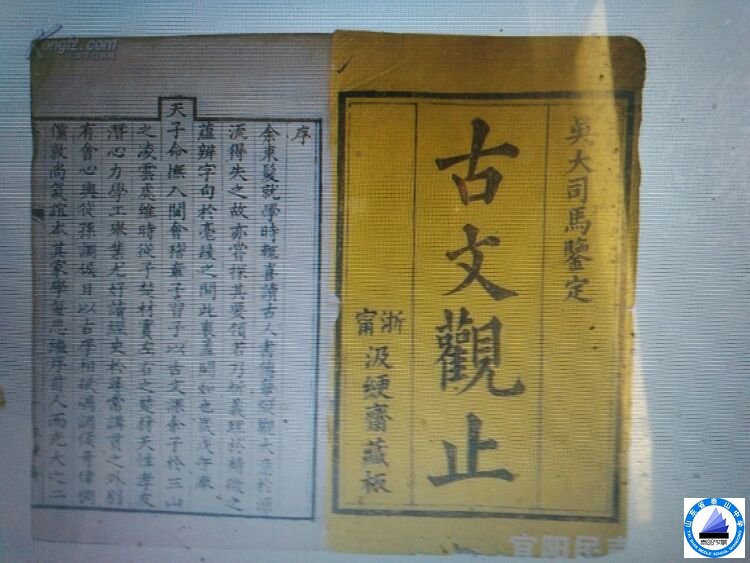 吳大司馬鑒定
古文觀止
浙甯
汲綆齋藏板
序
余束髮就學時輒喜讀古人書傳每縱觀大意於源
流得失之故亦嘗探其要領若乃析義理於精微之
蘊辨字句於毫髮之間此衷蓋闕如也歲戊午奉
天子命撫八閩會稽章子習子以古文課余子於三山
之凌雲處維時從子楚材實左右之楚材天性孝友
潛心力學工舉業尤好讀經史於尋常講貫之外別
有會心與從孫調侯日以古學相砥礪調侯奇偉倜
儻敦尚氣誼本其家學每思繼序前人而光大之二
山东省泰山中学